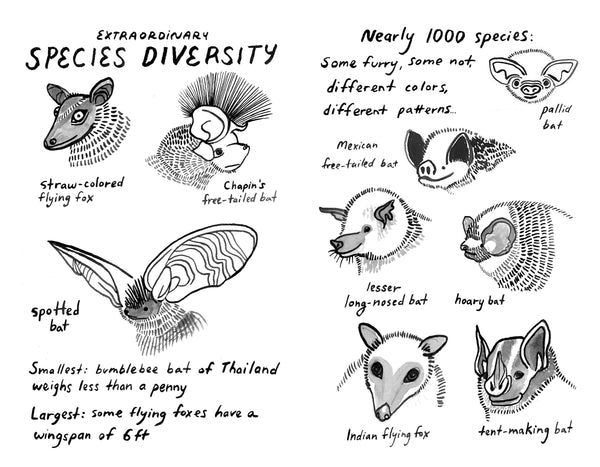 EXTRAORDINARY
SPECIES DIVERSITY
straw-colored
flying fox
Chapin's
free-tailed bat
spotted
bat
Smallest: bumblebee bat of Thailand
weighs less than a penny
Largest: some flying foxes have a
wingspan of 6ft
Nearly 1000 species:
Some furry, some not,
different colors,
different patterns...
pallid
bat
Mexican
free-tailed bat
lesser
long-nosed bat
hoary bat
Indian flying fox
tent-making bat